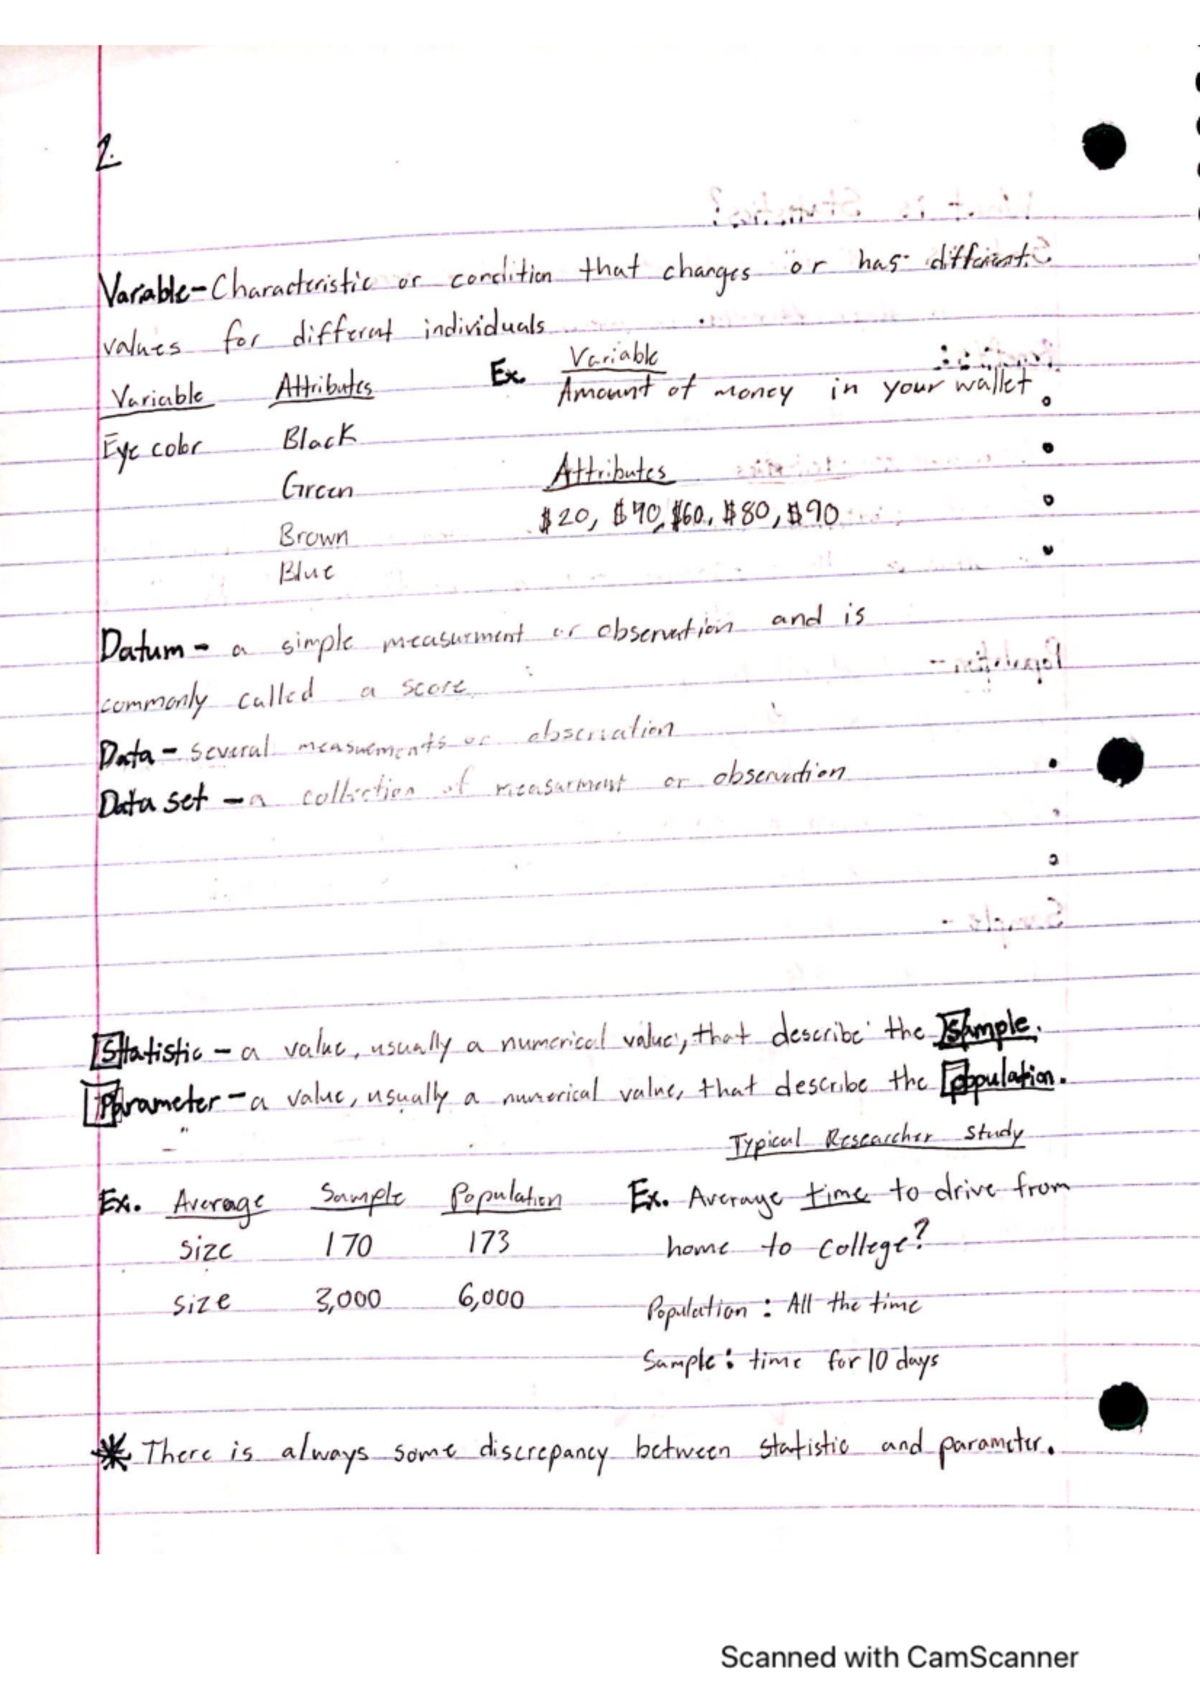 2.
Variable - Characteristic or condition that changes or has different
values for different individuals
Variable Attributes Ex. Variable
Eye color Black Amount of money in your wallet
Green Attributes
Brown $20, $40, $60, $80, $90
Blue
Datum - a simple measurment or observation and is
commonly called a score
Data - several measurements or observation
Data set - a collection of measurment or observation
Statistic - a value, usually a numerical value, that describe the Sample.
Parameter - a value, usually a numerical value, that describe the population.
Typical Researcher Study
Ex. Average Sample Population Ex. Average time to drive from
size 170 173 home to College?
size 3,000 6,000 Population: All the time
Sample: time for 10 days
* There is always some discrepancy between statistic and parameter.
Scanned with CamScanner